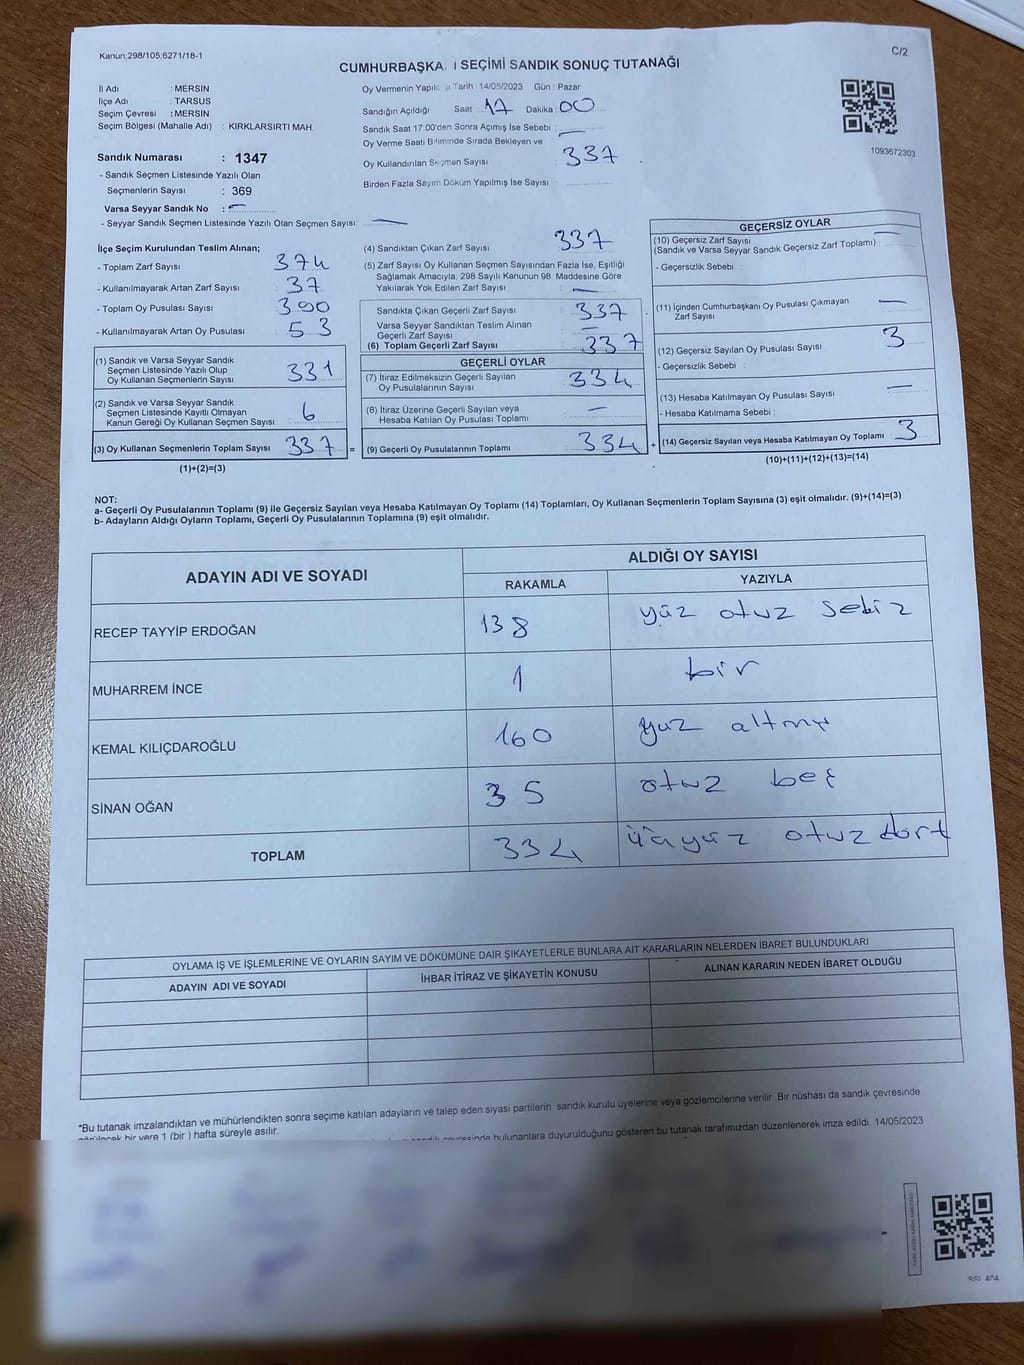 Kanun;298/105;6271/18-1
C/2
CUMHURBAŞKA I SEÇİMİ SANDIK SONUÇ TUTANAĞI
İl Adı : MERSİN
İlçe Adı : TARSUS
Seçim Çevresi : MERSİN
Seçim Bölgesi (Mahalle Adı) : KIRKLARSIRTI MAH.
Oy Vermenin Yapıl Tarih 14/05/2023 Gün : Pazar
Sandığın Açıldığı Saat 17 Dakika : 00
Sandık Saat 17:00'den Sonra Açımış İse Sebebi : —
Oy Verme Saati Bitiminde Sırada Bekleyen ve
Oy Kullandırılan Seçmen Sayısı : 337
Birden Fazla Sayım Döküm Yapılmış İse Sayısı
1093672303
Sandık Numarası : 1347
- Sandık Seçmen Listesinde Yazılı Olan
Seçmenlerin Sayısı : 369
Varsa Seyyar Sandık No : —
- Seyyar Sandık Seçmen Listesinde Yazılı Olan Seçmen Sayısı: —
İlçe Seçim Kurulundan Teslim Alınan;
- Toplam Zarf Sayısı 374
- Kullanılmayarak Artan Zarf Sayısı 37
- Toplam Oy Pusulası Sayısı 390
- Kullanılmayarak Artan Oy Pusulası 53
(1) Sandık ve Varsa Seyyar Sandık
Seçmen Listesinde Yazılı Olup
Oy Kullanan Seçmenlerin Sayısı 331
(2) Sandık ve Varsa Seyyar Sandık
Seçmen Listesinde Kayıtlı Olmayan
Kanun Gereği Oy Kullanan Seçmen Sayısı 6
(3) Oy Kullanan Seçmenlerin Toplam Sayısı 337 =
(1)+(2)=(3)
(4) Sandıktan Çıkan Zarf Sayısı 337
(5) Zarf Sayısı Oy Kullanan Seçmen Sayısından Fazla İse, Eşitliği
Sağlamak Amacıyla; 298 Sayılı Kanunun 98. Maddesine Göre
Yakılarak Yok Edilen Zarf Sayısı —
Sandıkta Çıkan Geçerli Zarf Sayısı 337
Varsa Seyyar Sandıktan Teslim Alınan
Geçerli Zarf Sayısı —
(6) Toplam Geçerli Zarf Sayısı 337
GEÇERLİ OYLAR
(7) İtiraz Edilmeksizin Geçerli Sayılan
Oy Pusulalarının Sayısı 334
(8) İtiraz Üzerine Geçerli Sayılan veya
Hesaba Katılan Oy Pusulası Toplamı —
(9) Geçerli Oy Pusulalarının Toplamı 334 +
GEÇERSİZ OYLAR
(10) Geçersiz Zarf Sayısı —
(Sandık ve Varsa Seyyar Sandık Geçersiz Zarf Toplamı) :
- Geçersizlik Sebebi :
(11) İçinden Cumhurbaşkanı Oy Pusulası Çıkmayan
Zarf Sayısı —
(12) Geçersiz Sayılan Oy Pusulası Sayısı 3
- Geçersizlik Sebebi :
(13) Hesaba Katılmayan Oy Pusulası Sayısı —
- Hesaba Katılmama Sebebi :
(14) Geçersiz Sayılan veya Hesaba Katılmayan Oy Toplamı 3
(10)+(11)+(12)+(13)=(14)
NOT:
a- Geçerli Oy Pusulalarının Toplamı (9) ile Geçersiz Sayılan veya Hesaba Katılmayan Oy Toplamı (14) Toplamları, Oy Kullanan Seçmenlerin Toplam Sayısına (3) eşit olmalıdır. (9)+(14)=(3)
b- Adayların Aldığı Oyların Toplamı, Geçerli Oy Pusulalarının Toplamına (9) eşit olmalıdır.
ADAYIN ADI VE SOYADI
ALDIĞI OY SAYISI
RAKAMLA YAZIYLA
RECEP TAYYİP ERDOĞAN 138 yüz otuz sekiz
MUHARREM İNCE 1 bir
KEMAL KILIÇDAROĞLU 160 yüz altmış
SİNAN OĞAN 35 otuz beş
TOPLAM 334 üçyüz otuz dört
OYLAMA İŞ VE İŞLEMLERİNE VE OYLARIN SAYIM VE DÖKÜMÜNE DAİR ŞİKAYETLERLE BUNLARA AİT KARARLARIN NELERDEN İBARET BULUNDUKLARI
ADAYIN ADI VE SOYADI İHBAR İTİRAZ VE ŞİKAYETİN KONUSU ALINAN KARARIN NEDEN İBARET OLDUĞU
*Bu tutanak imzalandıktan ve mühürlendikten sonra seçime katılan adayların ve talep eden siyasi partilerin sandık kurulu üyelerine veya gözlemcilerine verilir. Bir nüshası da sandık çevresinde
görülecek bir yere 1 (bir ) hafta süreyle asılır.
bulunanlara duyurulduğunu gösteren bu tutanak tarafımızdan düzenlenerek imza edildi. 14/05/2023